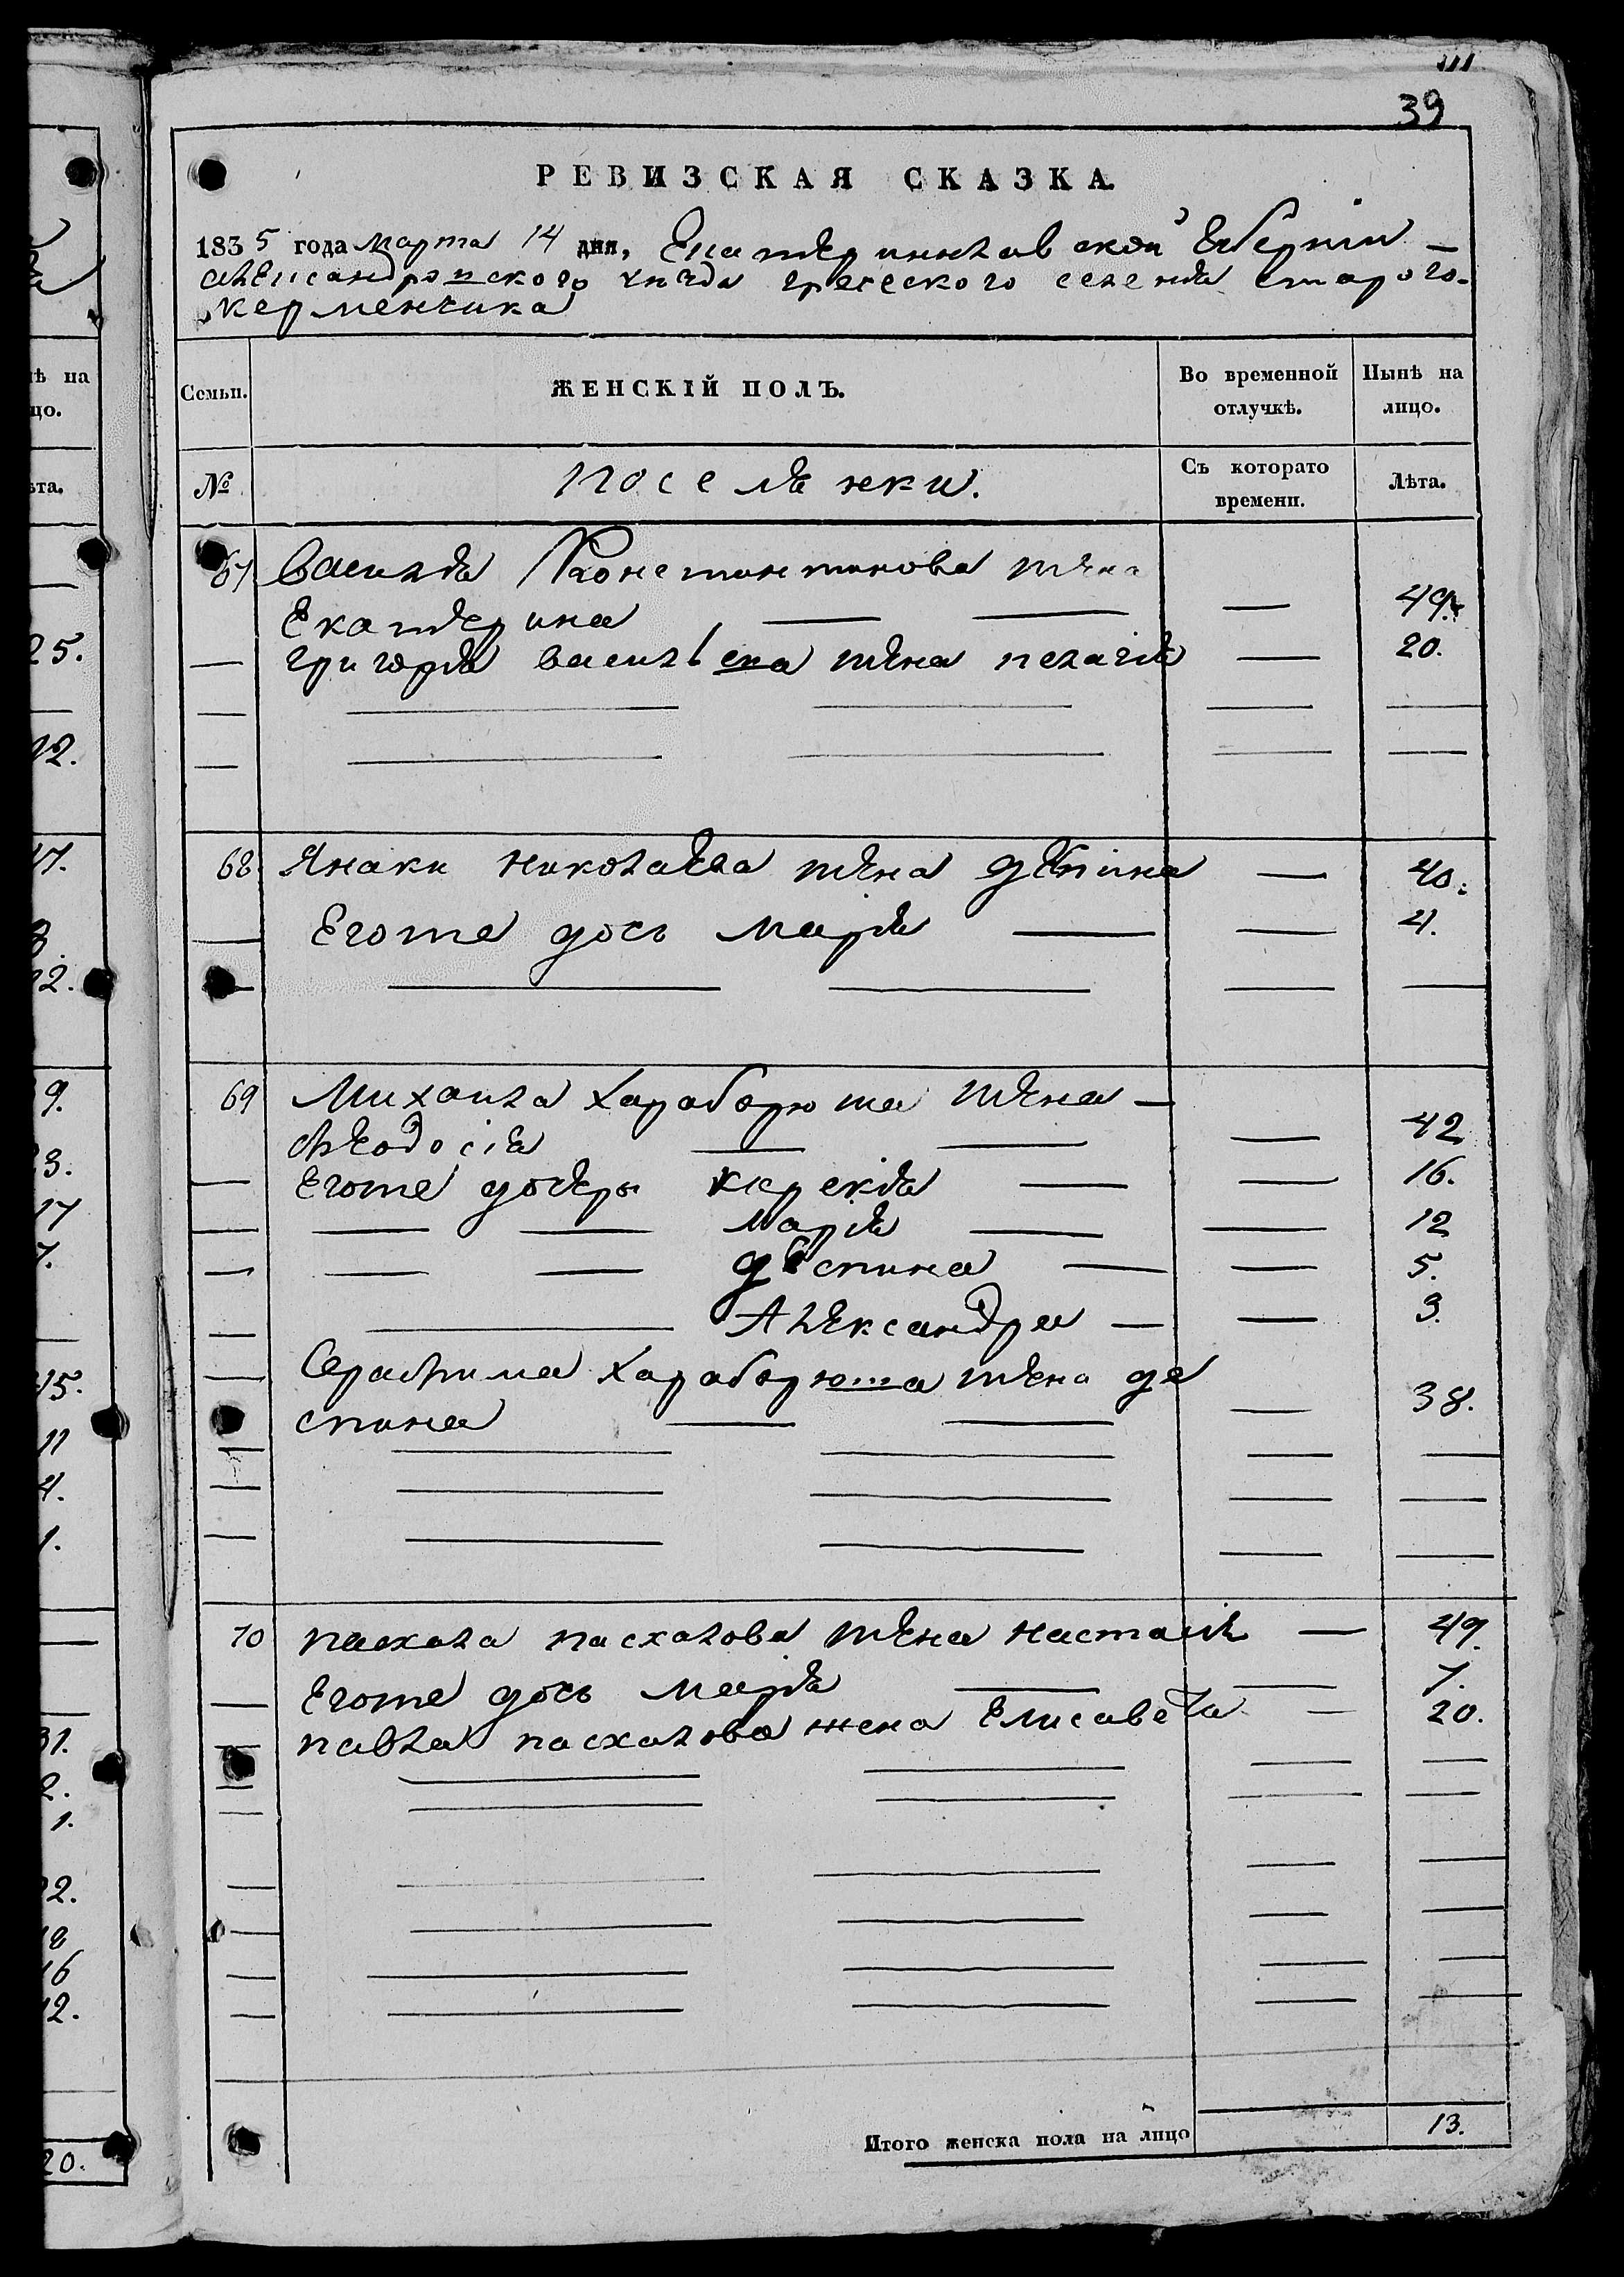 39
РЕВИЗСКАЯ СКАЗКА.
1835 года марта 14 дня, Екатеринославской губерніи
александровского уезда греческого селенія старого
керменчика
Семьи. ЖЕНСКІЙ ПОЛЪ. Во временной отлучкѣ. Нынѣ на лицо.
№ поселянки. Съ котораго времени. Лѣта.
67 Василія Константинова жена
Екатерина — — — 49.
— григорія васильева жена пелагія — 20.
68 Янаки николаева жена деспина — 40.
— Егоже дочь марія — — 4.
69 Михаила Хараборюша жена —
Феодосія — — — 42
— Егоже дочери кирекія — — 16.
— — — марія — — 12
— — — деспина — — 5.
— — Александра — — 3.
— Серафима Хараборюша жена де
спина — — — 38.
70 пасхала пасхалова жена настасія — 49.
— Егоже дочь марія — — 7.
— павла пасхалова жена Елисавета — 20.
Итого женска пола на лицо 13.
ѣ на
цо.
ѣта.
25.
12.
17.
12.
9.
3.
17
7.
15.
11
4.
1.
31.
2.
1.
22.
18
16
12.
20.